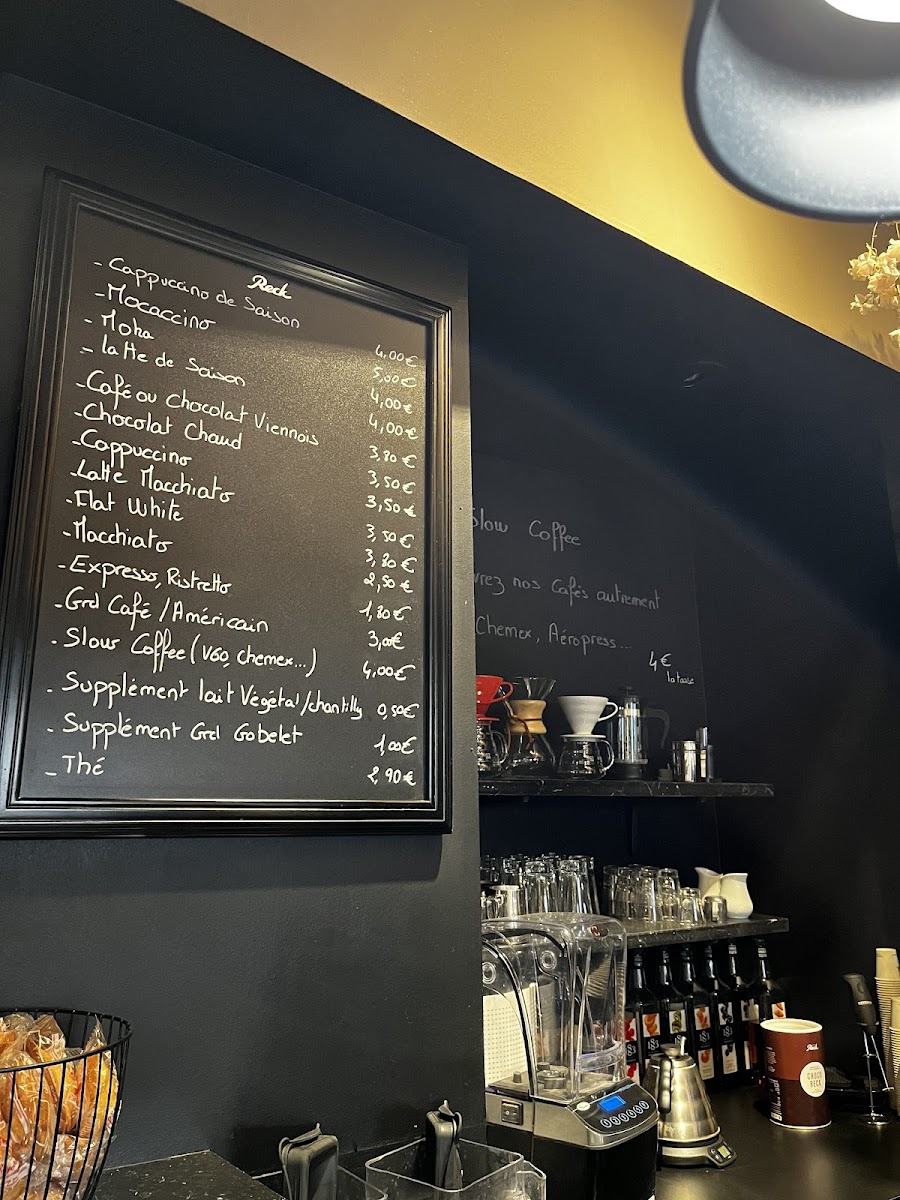 Reck
- Cappuccino de Saison 4,00€
- Mocaccino 5,00€
- Moka 4,00€
- latte de Saison 4,00€
- Café ou chocolat Viennois 3,80€
- Chocolat Chaud 3,50€
- Cappuccino 3,50€
- Latte Macchiato 3,50€
- Flat White 3,80€
- Macchiato 2,50€
- Expresso, Ristretto 1,80€
- Grd Café / Américain 3,00€
- Slow Coffee (V60, chemex...) 4,00€
- Supplément lait Végétal/chantilly 0,50€
- Supplément Grd Gobelet 1,00€
- Thé 2,90€
Slow Coffee
vrez nos cafés autrement
Chemex, Aéropress...
4€
la tasse
Reck
CHOCO
RECK